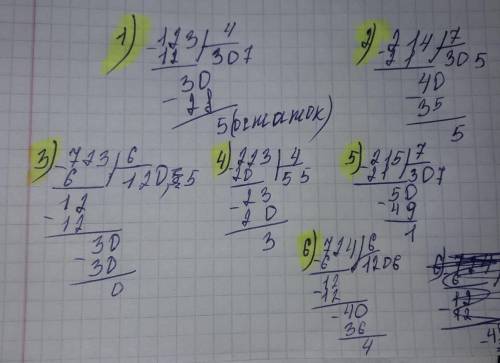 1) -123 | 4
12 307
30
- 28
5 (остаток)
2) -214 | 7
21 305
- 40
35
5
3) -723 | 6
6 120,5
12
- 12
30
- 30
0
4) -223 | 4
20 55
- 23
20
3
5) -215 | 7
21 307
- 50
49
1
6) -724 | 6
6 1206
12
- 12
- 40
36
4